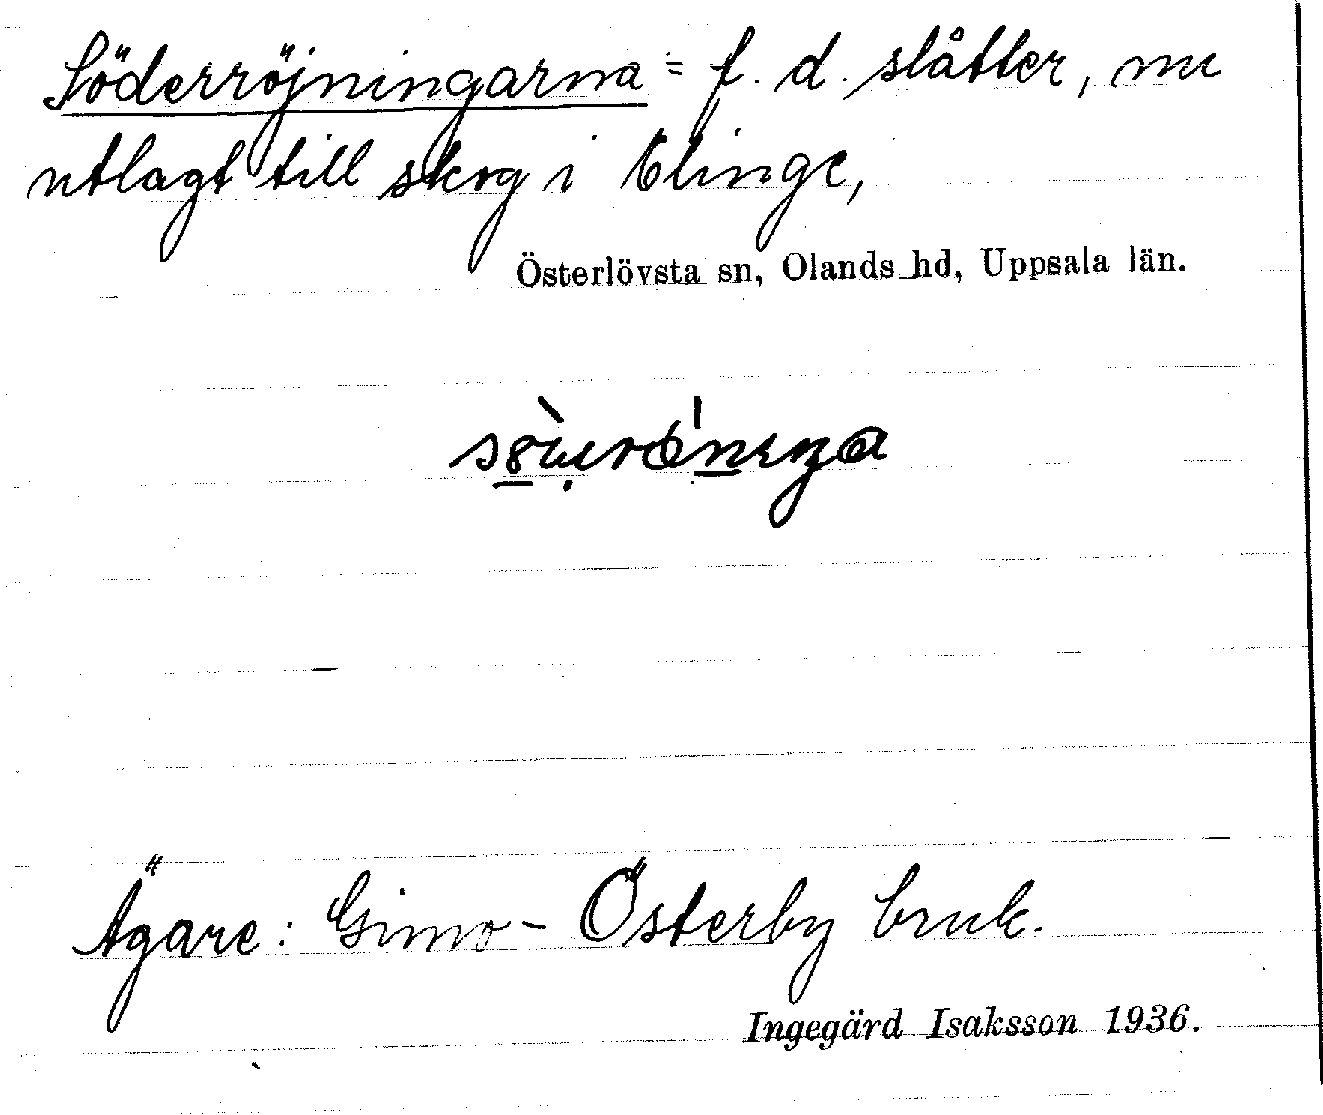 Söderröjningarna = f. d. slåtter, nu
utlagt till skog i Elinge,
Österlövsta sn, Olands hd, Uppsala län.
Ägare: Gimo-Österby bruk.
Ingegärd Isaksson 1936.